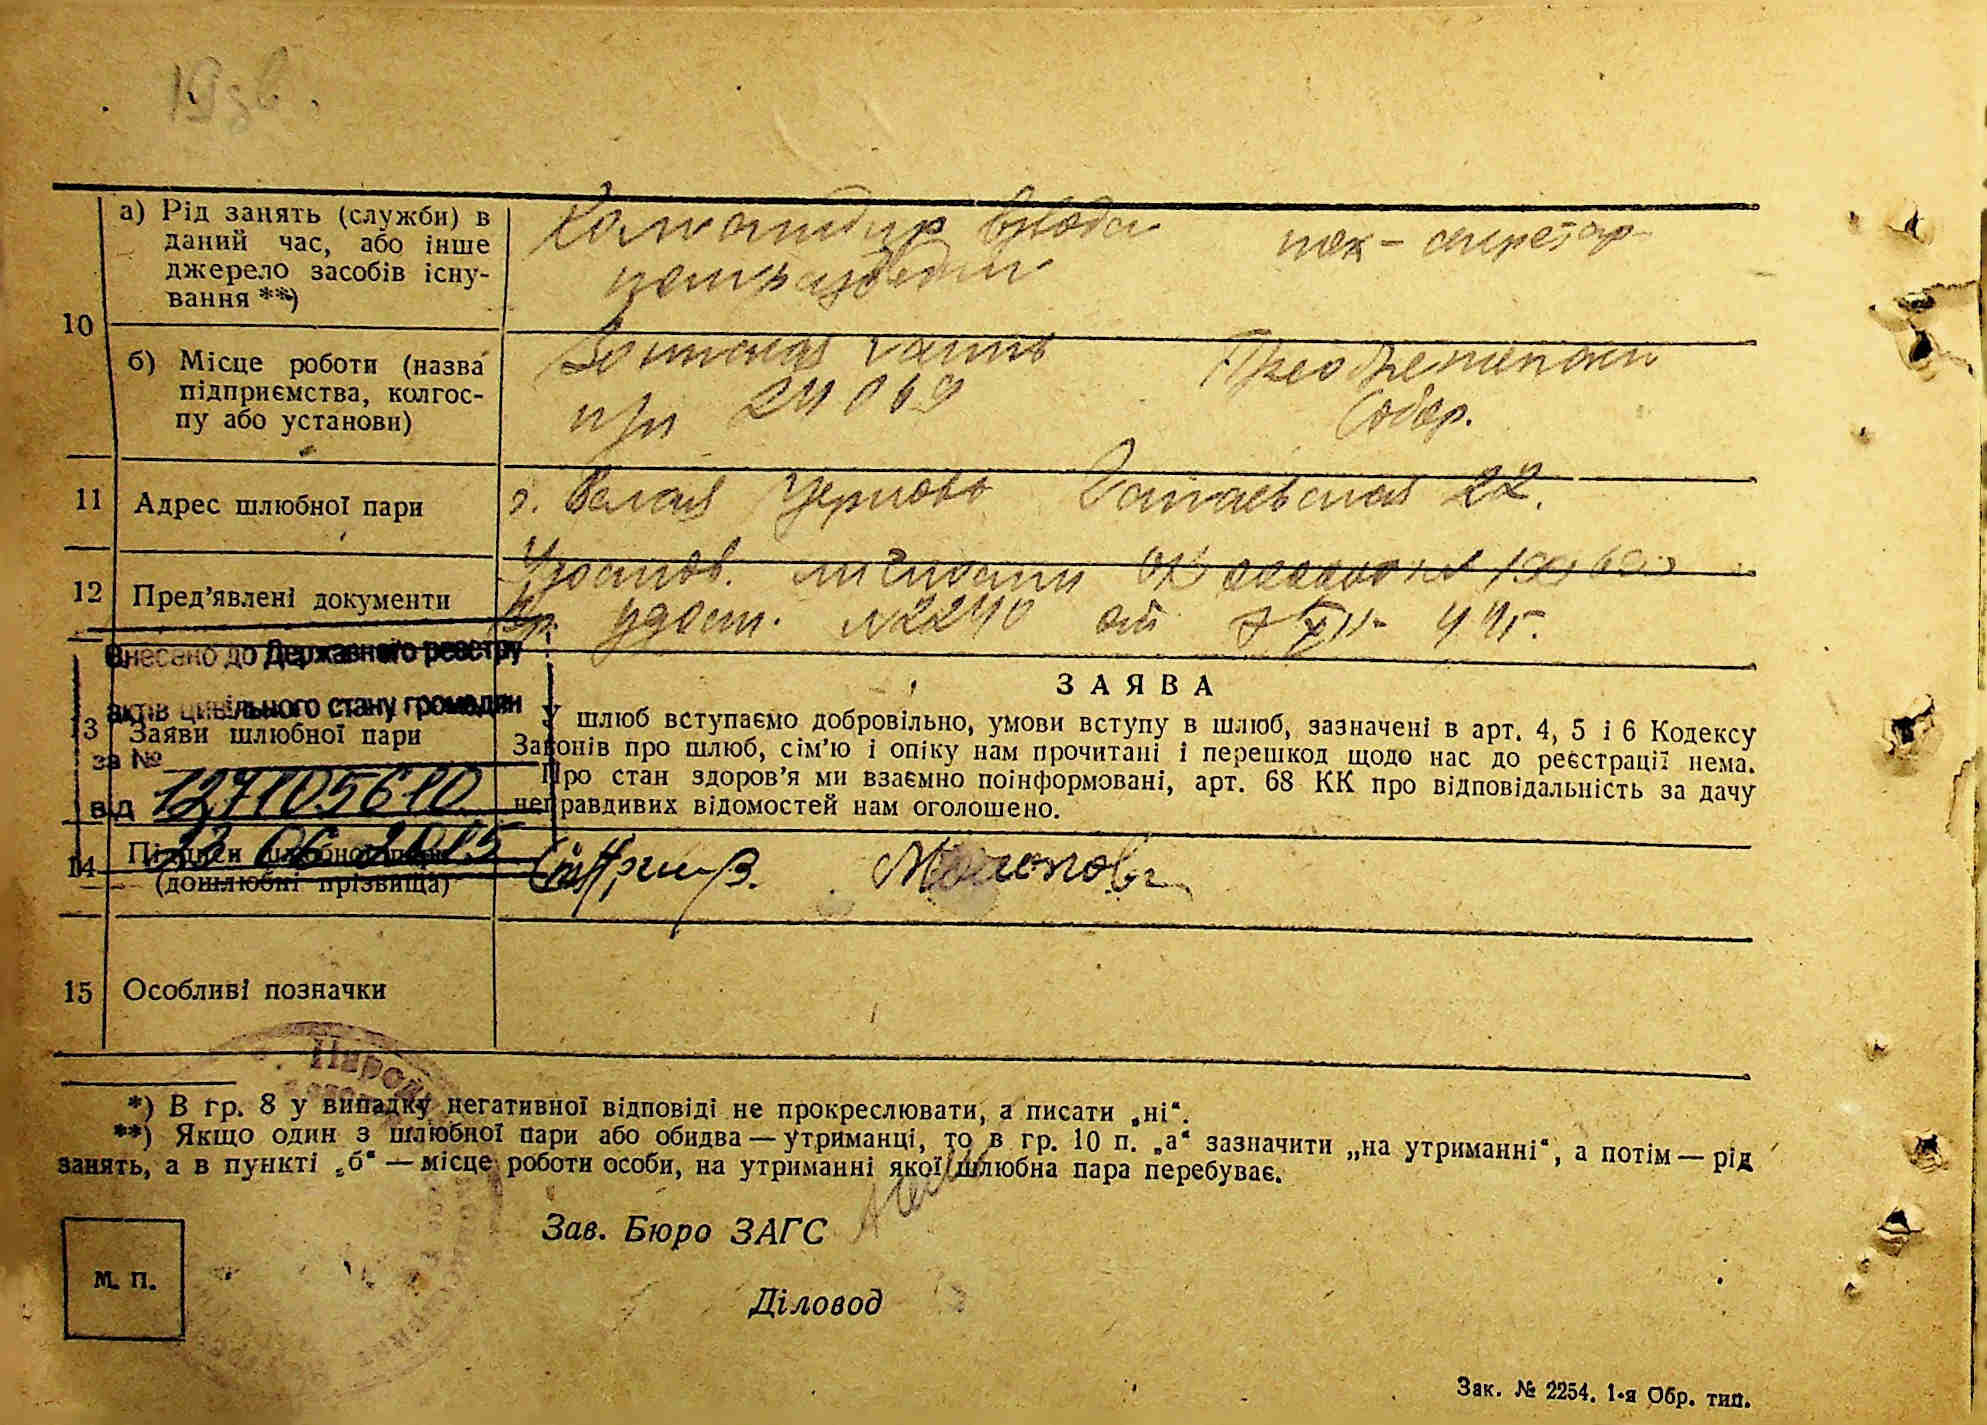 а) Рід занять (служби) в
даний час, або інше
джерело засобів існу-
вання **)
Командир взвода
тех - секретарь
10
б) Місце роботи (назва
підприємства, колгос-
пу або установи)
Воинская часть
п/п 24069
Преображенский
Собор.
11
Адрес шлюбної пари
г. Белая Церковь Чапаевская 22.
12
Пред’явлені документи
личности
удост. №2240 от 7 XII- 44г.
Внесено до Державного реєстру
актів цивільного стану громадян
за №
127105610
від
13
Заяви шлюбної пари
ЗАЯВА
У шлюб вступаємо добровільно, умови вступу в шлюб, зазначені в арт. 4, 5 і 6 Кодексу
Законів про шлюб, сім’ю і опіку нам прочитані і перешкод щодо нас до реєстрації нема.
Про стан здоров’я ми взаємно поінформовані, арт. 68 КК про відповідальність за дачу
неправдивих відомостей нам оголошено.
14
Підписи шлюбної пари
(дошлюбні прізвища)
15
Особливі позначки
*) В гр. 8 у випадку негативної відповіді не прокреслювати, а писати „ні“.
**) Якщо один з шлюбної пари або обидва — утриманці, то в гр. 10 п. „а“ зазначити „на утриманні“, а потім — рід
занять, а в пункті „б“ — місце роботи особи, на утриманні якої шлюбна пара перебуває.
Зав. Бюро ЗАГС
М. П.
Діловод
Зак. № 2254. 1-я Обр. тип.